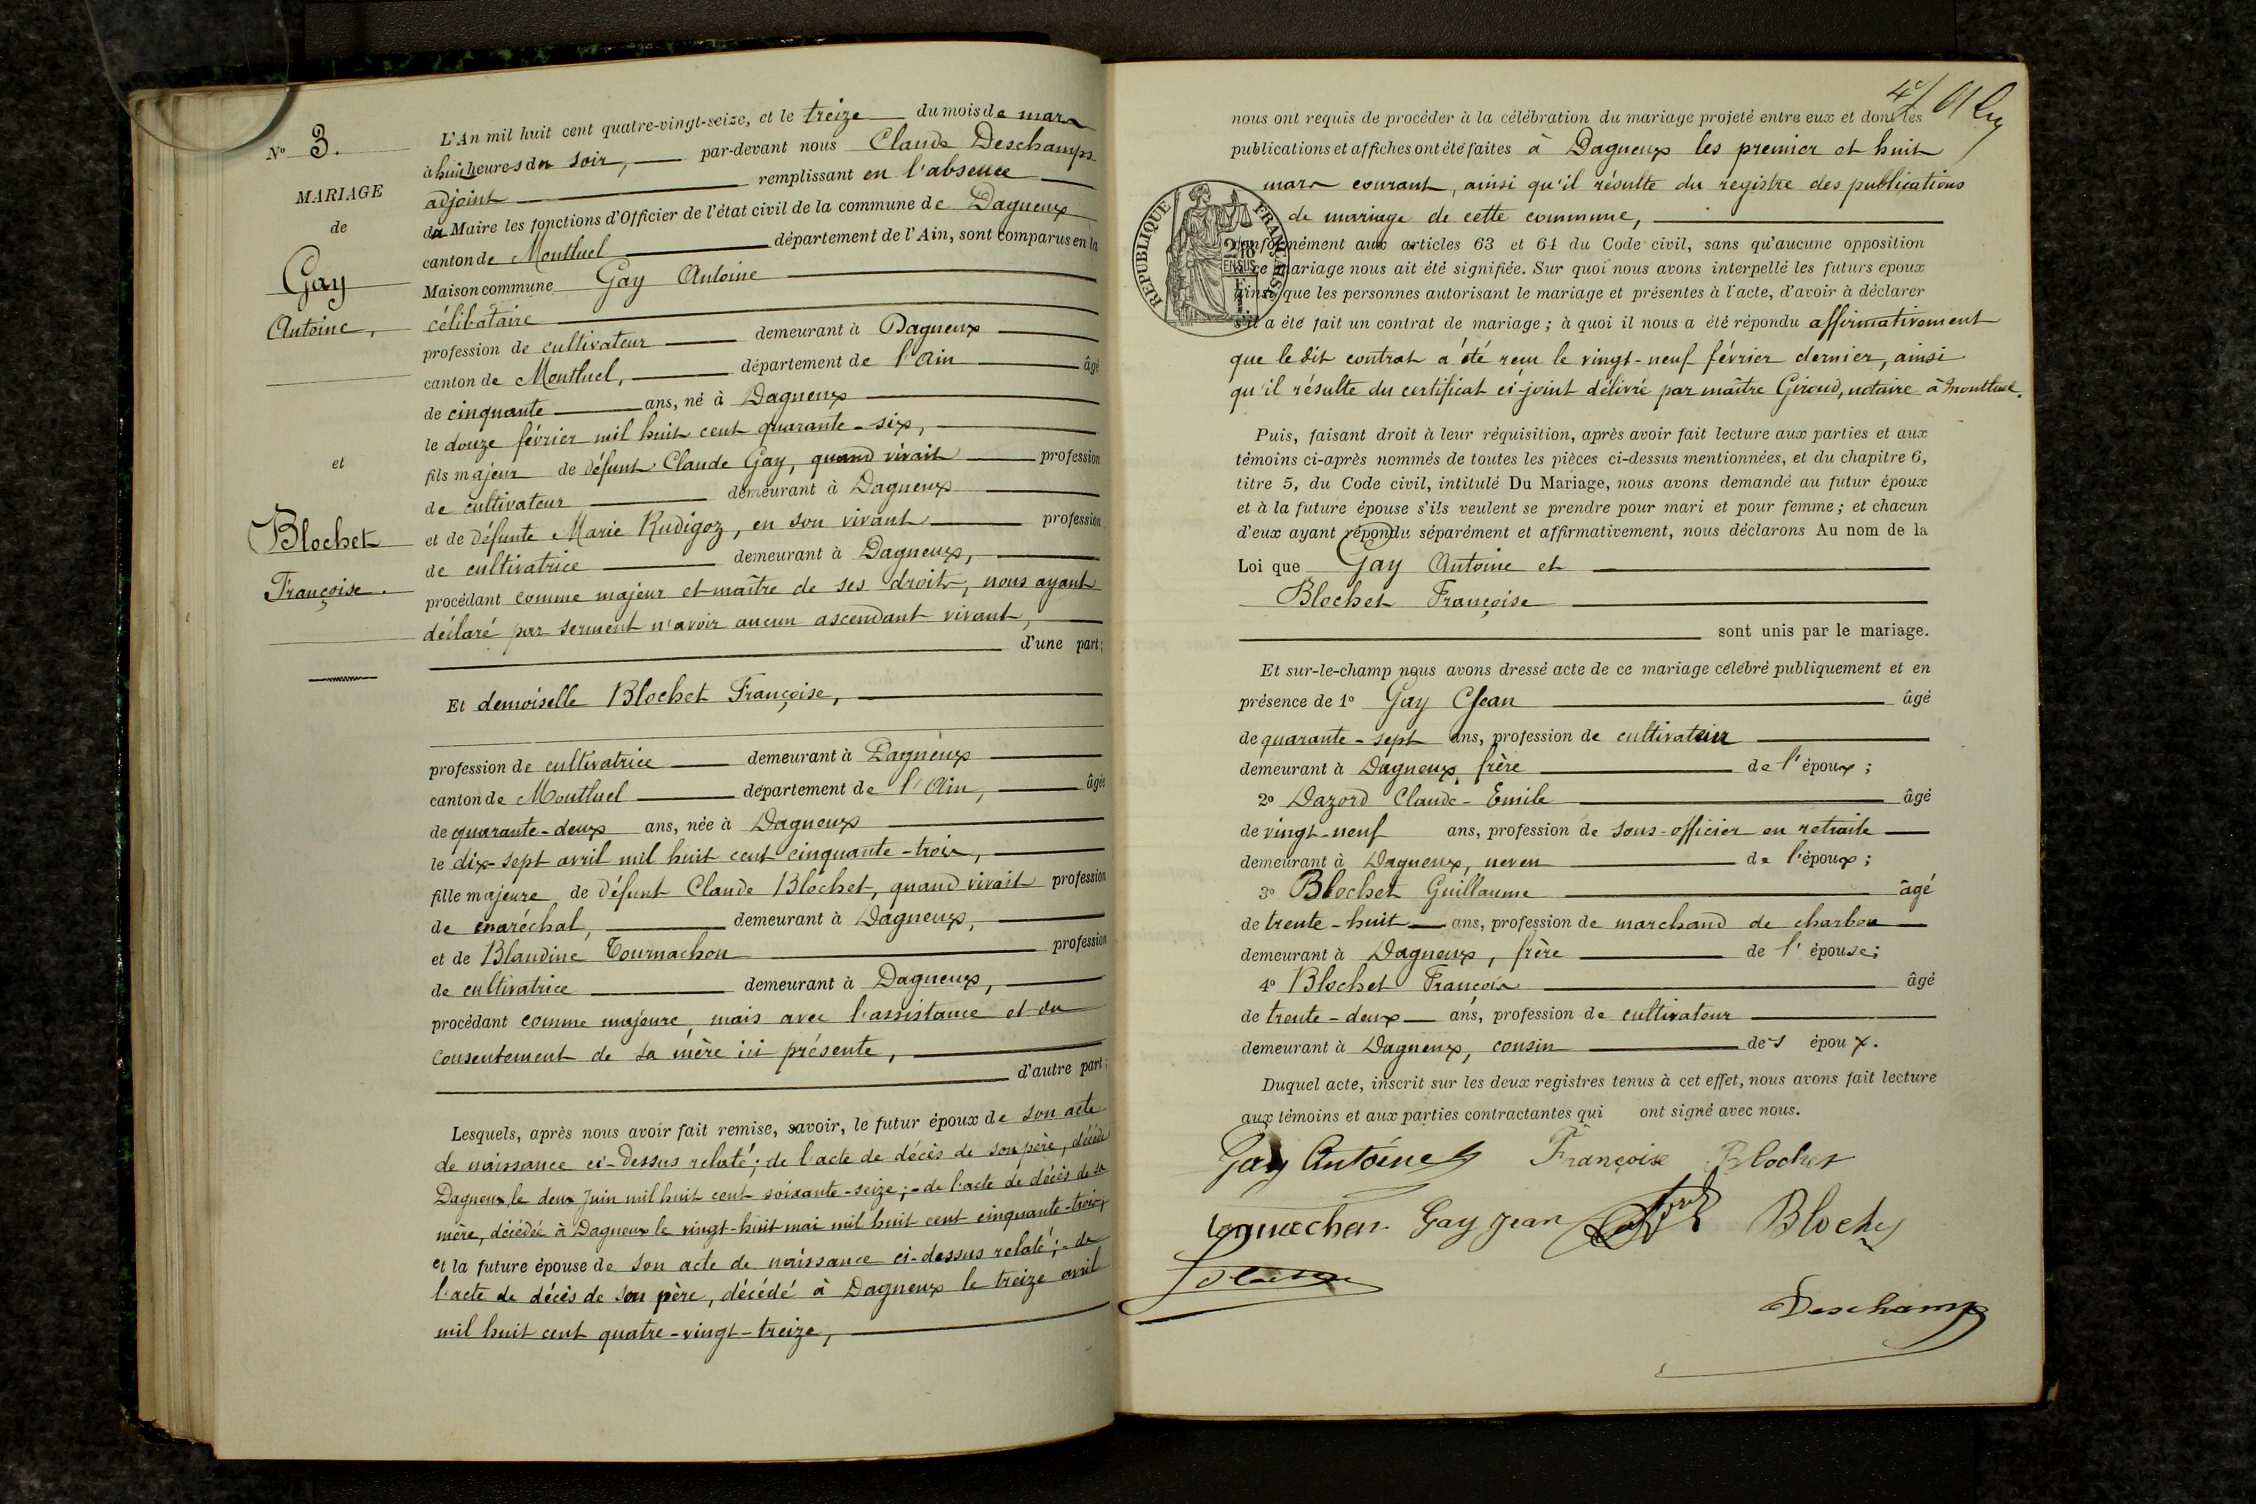 N° 3.
MARIAGE
de
Gay
Antoine,
et
Blochet
Françoise.
L'An mil huit cent quatre-vingt-seize, et le treize du mois de mars
à huit heures du soir, par-devant nous Claude Deschamps
adjoint remplissant en l'absence
du Maire les fonctions d'Officier de l'état civil de la commune de Dagneux
canton de Montluel département de l'Ain, sont comparus en la
Maison commune Gay Antoine
célibataire
profession de cultivateur demeurant à Dagneux
canton de Montluel, département de l'Ain âgé
de cinquante ans, né à Dagneux
le douze février mil huit cent quarante-six,
fils majeur de défunt Claude Gay, quand vivait profession
de cultivateur demeurant à Dagneux
et de défunte Marie Rudigoz, en son vivant profession
de cultivatrice demeurant à Dagneux,
procédant comme majeur et maître de ses droits, nous ayant
déclaré par serment n'avoir aucun ascendant vivant,
d'une part;
Et demoiselle Blochet Françoise,
profession de cultivatrice demeurant à Dagneux
canton de Montluel département de l'Ain, âgée
de quarante-deux ans, née à Dagneux
le dix-sept avril mil huit cent cinquante-trois,
fille majeure de défunt Claude Blochet, quand vivait profession
de maréchal, demeurant à Dagneux,
et de Blandine Tournachon profession
de cultivatrice demeurant à Dagneux,
procédant comme majeure, mais avec l'assistance et du
consentement de sa mère ici présente,
d'autre part;
Lesquels, après nous avoir fait remise, savoir, le futur époux de son acte
de naissance ci-dessus relaté; de l'acte de décès de son père, décédé
Dagneux, le deux Juin mil huit cent soixante-seize; - de l'acte de décès de sa
mère, décédée à Dagneux le vingt-huit mai mil huit cent cinquante-trois,
et la future épouse de son acte de naissance ci-dessus relaté; - de
l'acte de décès de son père, décédé à Dagneux le treize avril
mil huit cent quatre-vingt-treize,
nous ont requis de procéder à la célébration du mariage projeté entre eux et dont les
publications et affiches ont été faites à Dagneux les premier et huit
mars courant, ainsi qu'il résulte du registre des publications
de mariage de cette commune,
RÉPUBLIQUE FRANÇAISE
conformément aux articles 63 et 64 du Code civil, sans qu'aucune opposition
à ce mariage nous ait été signifiée. Sur quoi nous avons interpellé les futurs époux
ainsi que les personnes autorisant le mariage et présentes à l'acte, d'avoir à déclarer
s'il a été fait un contrat de mariage; à quoi il nous a été répondu affirmativement
que le dit contrat a été reçu le vingt-neuf février dernier, ainsi
qu'il résulte du certificat ci-joint délivré par maître Giroud, notaire à Montluel.
Puis, faisant droit à leur réquisition, après avoir fait lecture aux parties et aux
témoins ci-après nommés de toutes les pièces ci-dessus mentionnées, et du chapitre 6,
titre 5, du Code civil, intitulé Du Mariage, nous avons demandé au futur époux
et à la future épouse s'ils veulent se prendre pour mari et pour femme; et chacun
d'eux ayant répondu séparément et affirmativement, nous déclarons Au nom de la
Loi que Gay Antoine et
Blochet Françoise
sont unis par le mariage.
Et sur-le-champ nous avons dressé acte de ce mariage célébré publiquement et en
présence de 1° Gay Jean âgé
de quarante-sept ans, profession de cultivateur
demeurant à Dagneux, frère de l'époux;
2° Dazord Claude-Emile âgé
de vingt-neuf ans, profession de sous-officier en retraite
demeurant à Dagneux, neveu de l'époux;
3° Blochet Guillaume âgé
de trente-huit ans, profession de marchand de charbon
demeurant à Dagneux, frère de l'épouse;
4° Blochet François âgé
de trente-deux ans, profession de cultivateur
demeurant à Dagneux, cousin des époux.
Duquel acte, inscrit sur les deux registres tenus à cet effet, nous avons fait lecture
aux témoins et aux parties contractantes qui ont signé avec nous.
Gay Antoine Françoise Blochet
Gay Jean
Deschamps